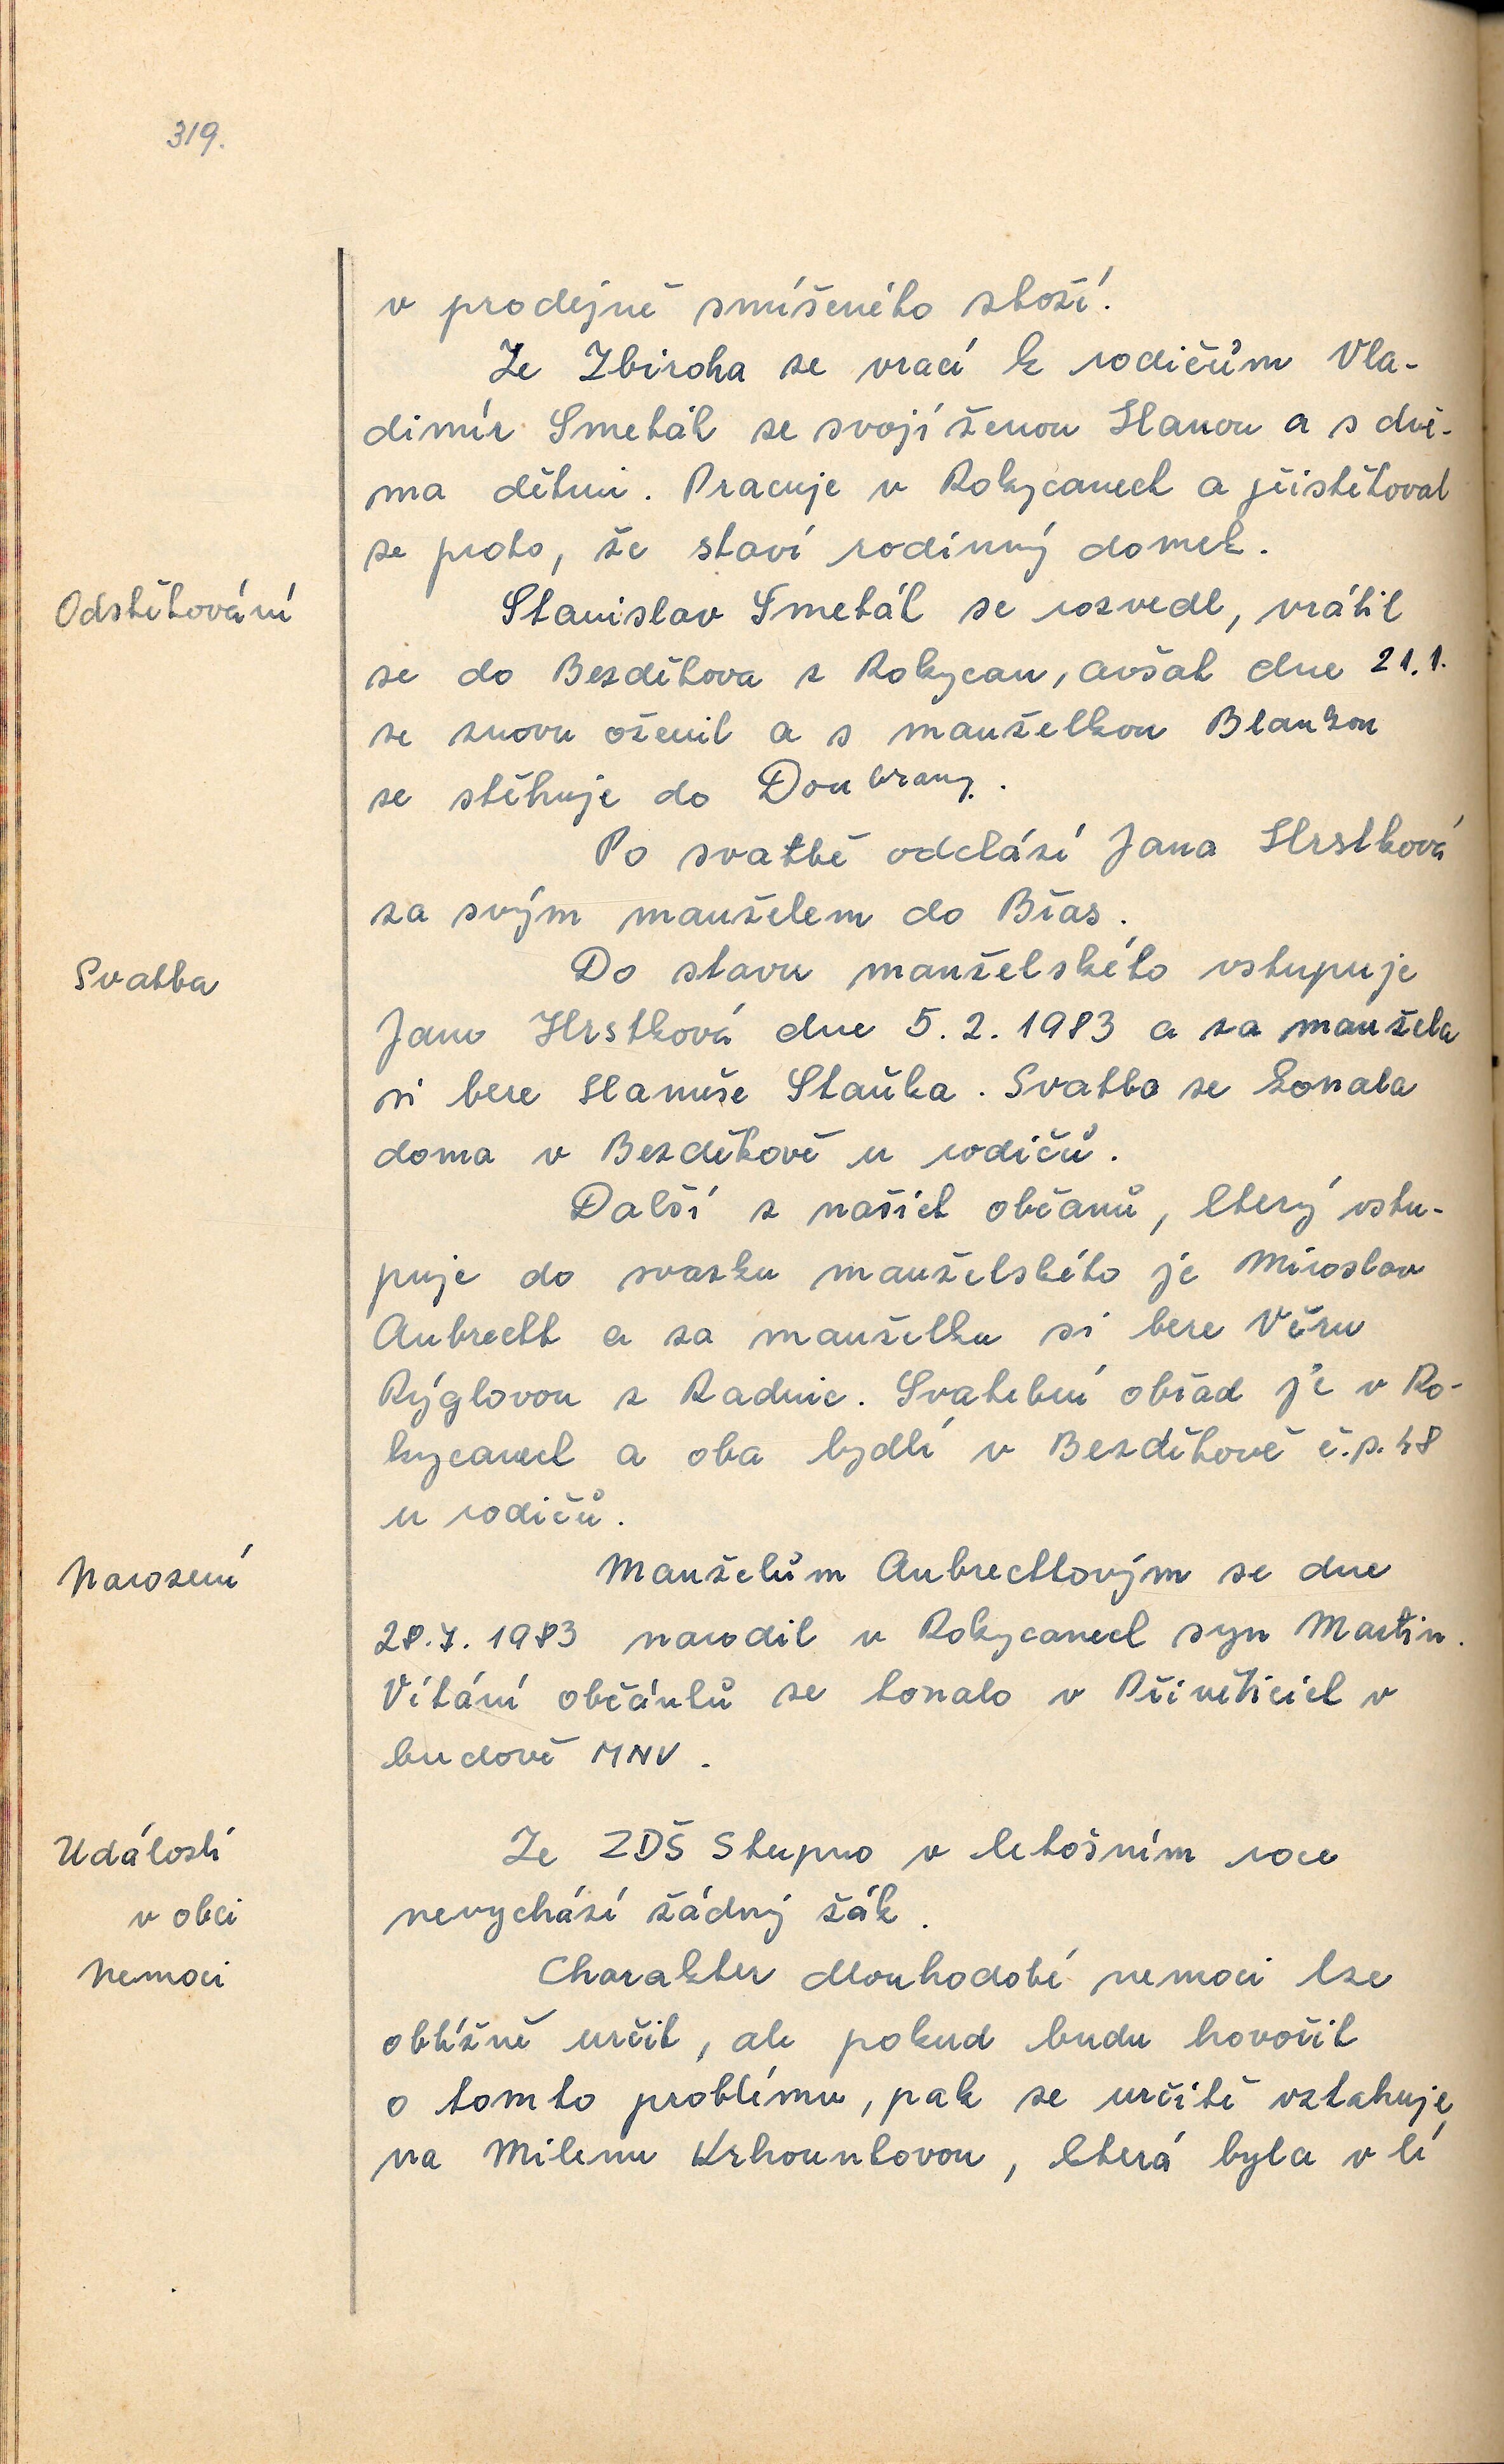 319.
v prodejně smíšeného zboží.
Ze Zbiroha se vrací k rodičům Vla-
dimír Smeták se svojí ženou Hanou a s dvě-
ma dětmi. Pracuje v Rokycanech a přistěhoval
se proto, že staví rodinný domek.
Odstěhování
Stanislav Smeták se rozvedl, vrátil
se do Bezděkova z Rokycan, avšak dne 21.1.
se znovu oženil a s manželkou Blankou
se stěhuje do Doubravy.
Po svatbě odchází Jana Hrstková
za svým manželem do Břas.
Svatba
Do stavu manželského vstupuje
Jana Hrstková dne 5.2.1983 a za manžela
si bere Hanuše Staňka. Svatba se konala
doma v Bezděkově u rodičů.
Další z našich občanů, který vstu-
puje do svazku manželského je Miroslav
Aubrecht a za manželku si bere Věru
Rýglovou z Radnic. Svatební obřad je v Ro-
kycanech a oba bydlí v Bezděkově č.p. 48
u rodičů.
Narození
Manželům Aubrechtovým se dne
28.7.1983 narodil v Rokycanech syn Martin.
Vítání občánků se konalo v Přívěticích v
budově MNV.
Události
v obci
Ze ZDŠ Stupno v letošním roce
nevychází žádný žák.
Nemoci
Charakter dlouhodobé nemoci lze
obtížně určit, ale pokud budu hovořit
o tomto problému, pak se určitě vztahuje
na Milenu Krhounkovou, která byla v lé